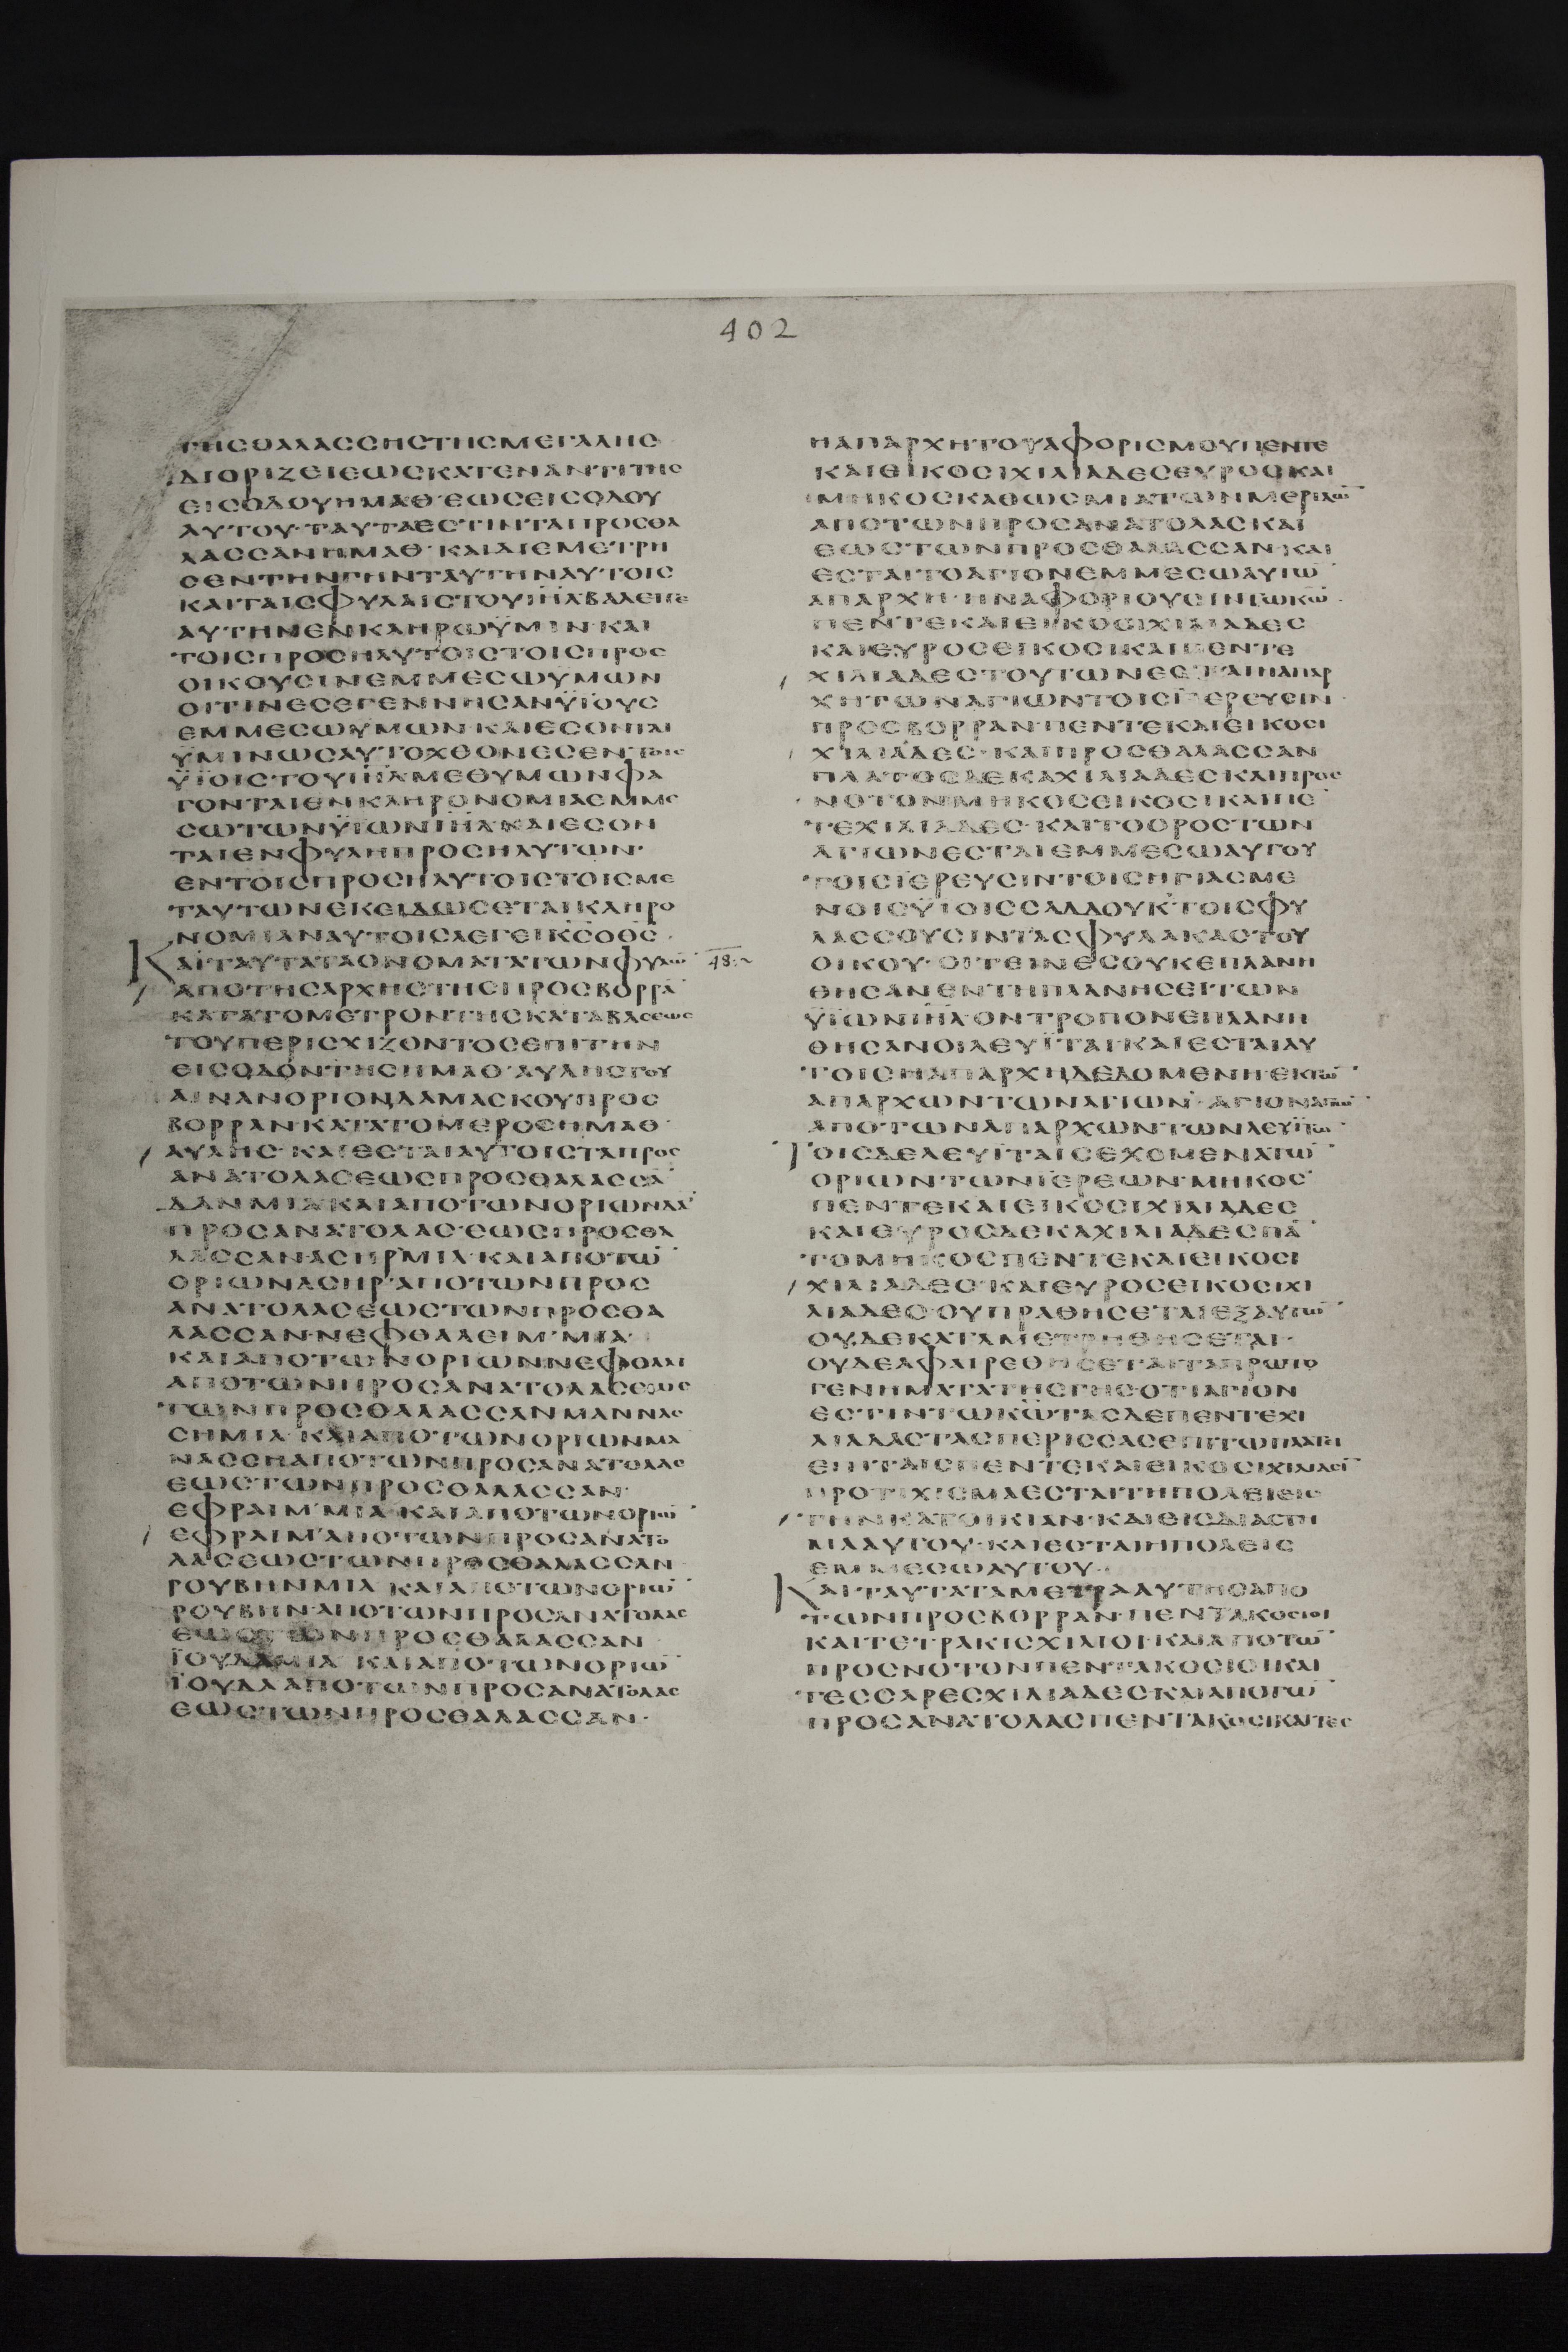 402
ΤΗΣΘΑΛΑΣΣΗΣΤΗΣΜΕΓΑΛΗΣ
ΔΙΟΡΙΖΕΙΕΩΣΚΑΤΕΝΑΝΤΙΤΗΣ
ΕΙΣΟΔΟΥΗΜΑΘ·ΕΩΣΕΙΣΟΔΟΥ
ΑΥΤΟΥ·ΤΑΥΤΑΕΣΤΙΝΤΑΠΡΟΣΘΑ
ΛΑΣΣΑΝΗΜΑΘ·ΚΑΙΔΙΕΜΕΤΡΗ
ΣΕΝΤΗΝΓΗΝΤΑΥΤΗΝΑΥΤΟΙΣ
ΚΑΙΤΑΙΣΦΥΛΑΙΣΤΟΥΙΗΛΒΑΛΕΙΤΕ
ΑΥΤΗΝΕΝΚΛΗΡΩΫΜΙΝ·ΚΑΙ
ΤΟΙΣΠΡΟΣΗΛΥΤΟΙΣΤΟΙΣΠΡΟΣ
ΟΙΚΟΥΣΙΝΕΜΜΕΣΩΥΜΩΝ
ΟΙΤΙΝΕΣΕΓΕΝΝΗΣΑΝΫΪΟΥΣ
ΕΜΜΕΣΩΥΜΩΝ·ΚΑΙΕΣΟΝΤΑΙ
ΫΜΙΝΩΣΑΥΤΟΧΘΟΝΕΣΕΝΤΟΙΣ
ΫΪΟΙΣΤΟΥΙΗΛΜΕΘΥΜΩΝΦΑ
ΓΟΝΤΑΙΕΝΚΛΗΡΟΝΟΜΙΑΕΜΜΕ
ΣΩΤΩΝΫΪΩΝΙΗΛ·ΚΑΙΕΣΟΝ
ΤΑΙΕΝΦΥΛΗΠΡΟΣΗΛΥΤΩΝ·
ΕΝΤΟΙΣΠΡΟΣΗΛΥΤΟΙΣΤΟΙΣΜΕ
ΤΑΥΤΩΝΕΚΕΙΔΩΣΕΤΑΙΚΛΗΡΟ
ΝΟΜΙΑΝΑΥΤΟΙΣΛΕΓΕΙΚΣΟΘΣ·
ΚΑΙΤΑΥΤΑΤΑΟΝΟΜΑΤΑΤΩΝΦΥΛΩΝ 48:~
ΑΠΟΤΗΣΑΡΧΗΣΤΗΣΠΡΟΣΒΟΡΡΑ̅
ΚΑΤΑΤΟΜΕΤΡΟΝΤΗΣΚΑΤΑΒΑΣΕΩΣ
ΤΟΥΠΕΡΙΣΧΙΖΟΝΤΟΣΕΠΙΤΗΝ
ΕΙΣΟΔΟΝΤΗΣΗΜΑΘ·ΑΥΛΗΣΤΟΥ
ΑΙΝΑΝΟΡΙΟΝΔΑΜΑΣΚΟΥΠΡΟΣ
ΒΟΡΡΑΝΚΑΤΑΤΟΜΕΡΟΣΗΜΑΘ
ΑΥΛΗΣ·ΚΑΙΕΣΤΑΙΑΥΤΟΙΣΤΑΠΡΟΣ
ΑΝΑΤΟΛΑΣΕΩΣΠΡΟΣΘΑΛΑΣΣΑ̅
ΔΑΝΜΙΑΚΑΙΑΠΟΤΩΝΟΡΙΩΝΔΑ̅
ΠΡΟΣΑΝΑΤΟΛΑΣ·ΕΩΣΠΡΟΣΘΑ
ΛΑΣΣΑΝ·ΑΣΗΡΜΙΑ·ΚΑΙΑΠΟΤΩ̅
ΟΡΙΩΝΑΣΗΡ·ΑΠΟΤΩΝΠΡΟΣ
ΑΝΑΤΟΛΑΣΕΩΣΤΩΝΠΡΟΣΘΑ
ΛΑΣΣΑΝ·ΝΕΦΘΑΛΕΙΜ·ΜΙΑ·
ΚΑΙΑΠΟΤΩΝΟΡΙΩΝΝΕΦΘΑΛΙ
ΑΠΟΤΩΝΠΡΟΣΑΝΑΤΟΛΑΣΕΩΣ
ΤΩΝΠΡΟΣΘΑΛΑΣΣΑΝΜΑΝΝΑΣ
ΣΗΜΙΑ·ΚΑΙΑΠΟΤΩΝΟΡΙΩΝΜΑ
ΝΑΣΣΗΑΠΟΤΩΝΠΡΟΣΑΝΑΤΟΛΑΣ
ΕΩΣΤΩΝΠΡΟΣΘΑΛΑΣΣΑΝ·
ΕΦΡΑΙΜ·ΜΙΑ·ΚΑΙΑΠΟΤΩΝΟΡΙΩ̅
ΕΦΡΑΙΜ·ΑΠΟΤΩΝΠΡΟΣΑΝΑΤΟ
ΛΑΣΕΩΣΤΩΝΠΡΟΣΘΑΛΑΣΣΑΝ
ΡΟΥΒΗΝΜΙΑ ΚΑΙΑΠΟΤΩΝΟΡΙΩ̅
ΡΟΥΒΗΝ·ΑΠΟΤΩΝΠΡΟΣΑΝΑΤΟΛΑΣ
ΕΩΣΤΩΝΠΡΟΣΘΑΛΑΣΣΑΝ
ΪΟΥΔΑΜΙΑ ΚΑΙΑΠΟΤΩΝΟΡΙΩ̅
ΪΟΥΔΑΑΠΟΤΩΝΠΡΟΣΑΝΑΤΟΛΑΣ
ΕΩΣΤΩΝΠΡΟΣΘΑΛΑΣΣΑΝ·
ΗΑΠΑΡΧΗΤΟΥΑΦΟΡΙΣΜΟΥΠΕΝΤΕ
ΚΑΙΕΙΚΟΣΙΧΙΛΙΑΔΕΣΕΥΡΟΣΚΑΙ
ΜΗΚΟΣΚΑΘΩΣΜΙΑΤΩΝΜΕΡΙΔΩ̅
ΑΠΟΤΩΝΠΡΟΣΑΝΑΤΟΛΑΣΚΑΙ
ΕΩΣΤΩΝΠΡΟΣΘΑΛΑΣΣΑΝ·ΚΑΙ
ΕΣΤΑΙΤΟΑΓΙΟΝΕΜΜΕΣΩΑΥΤΩ̅
ΑΠΑΡΧΗ·ΗΝΑΦΟΡΙΟΥΣΙΝΤΩΚΩ̅
ΠΕΝΤΕΚΑΙΕΙΚΟΣΙΧΙΛΙΑΔΕΣ
ΚΑΙΕΥΡΟΣΕΙΚΟΣΙΚΑΙΠΕΝΤΕ
ΧΙΛΙΑΔΕΣΤΟΥΤΩΝΕΣΤΑΙΗΑΠΑΡ
ΧΗΤΩΝΑΓΙΩΝΤΟΙΣΪΕΡΕΥΣΙΝ·
ΠΡΟΣΒΟΡΡΑΝ·ΠΕΝΤΕΚΑΙΕΙΚΟΣΙ
ΧΙΛΙΑΔΕΣ·ΚΑΙΠΡΟΣΘΑΛΑΣΣΑΝ
ΠΛΑΤΟΣΔΕΚΑΧΙΛΙΑΔΕΣΚΑΙΠΡΟΣ
ΝΟΤΟΝΜΗΚΟΣΕΙΚΟΣΙΚΑΙΠΕ̅
ΤΕΧΙΛΙΑΔΕΣ·ΚΑΙΤΟΟΡΟΣΤΩΝ
ΑΓΙΩΝΕΣΤΑΙΕΜΜΕΣΩΑΥΤΟΥ
ΤΟΙΣΪΕΡΕΥΣΙΝΤΟΙΣΗΓΙΑΣΜΕ
ΝΟΙΣΫΪΟΙΣΣΑΔΔΟΥΚ·ΤΟΙΣΦΥ
ΛΑΣΣΟΥΣΙΝΤΑΣΦΥΛΑΚΑΣΤΟΥ
ΟΙΚΟΥ·ΟΙΤΕΙΝΕΣΟΥΚΕΠΛΑΝΗ
ΘΗΣΑΝΕΝΤΗΠΛΑΝΗΣΕΙΤΩΝ
ΫΪΩΝΙΗΛ·ΟΝΤΡΟΠΟΝΕΠΛΑΝΗ
ΘΗΣΑΝΟΙΛΕΥΪΤΑΙ·ΚΑΙΕΣΤΑΙΑΥ
ΤΟΙΣΗΑΠΑΡΧΗΔΕΔΟΜΕΝΗ·ΕΚΤΩ̅
ΑΠΑΡΧΩΝΤΩΝΑΓΙΩΝ·ΑΓΙΟΝΑΓΙΩ̅
ΑΠΟΤΩΝΑΠΑΡΧΩΝΤΩΝΛΕΥΪΤΩ̅
ΤΟΙΣΔΕΛΕΥΪΤΑΙΣΕΧΟΜΕΝΑΤΩ̅
ΟΡΙΩΝΤΩΝΪΕΡΕΩΝ·ΜΗΚΟΣ
ΠΕΝΤΕΚΑΙΕΙΚΟΣΙΧΙΛΙΑΔΕΣ
ΚΑΙΕΥΡΟΣΔΕΚΑΧΙΛΙΑΔΕΣΠΑ̅
ΤΟΜΗΚΟΣΠΕΝΤΕΚΑΙΕΙΚΟΣΙ
ΧΙΛΙΑΔΕΣ·ΚΑΙΕΥΡΟΣΕΙΚΟΣΙΧΙ
ΛΙΑΔΕΣ·ΟΥΠΡΑΘΗΣΕΤΑΙΕΞΑΥΤΩ̅
ΟΥΔΕΚΑΤΑΜΕΤΡΗΘΗΣΕΤΑΙ·
ΟΥΔΕΑΦΑΙΡΕΘΗΣΕΤΑΙΤΑΠΡΩΤΟ
ΓΕΝΗΜΑΤΑΤΗΣΓΗΣ·ΟΤΙΑΓΙΟΝ
ΕΣΤΙΝΤΩΚΩ·ΤΑΣΔΕΠΕΝΤΕΧΙ
ΛΙΑΔΑΣΤΑΣΠΕΡΙΣΣΑΣΕΠΙΤΩΠΛΑΤΕΙ
ΕΠΙΤΑΙΣΠΕΝΤΕΚΑΙΕΙΚΟΣΙΧΙΛΙΑΣΙ
ΠΡΟΤΙΧΙΣΜΑΕΣΤΑΙΤΗΠΟΛΕΙΕΙΣ
ΤΗΝΚΑΤΟΙΚΙΑΝ·ΚΑΙΕΙΣΔΙΑΣΤΗ
ΜΑΑΥΤΟΥ·ΚΑΙΕΣΤΑΙΗΠΟΛΕΙΣ
ΕΜΜΕΣΩΑΥΤΟΥ·
ΚΑΙΤΑΥΤΑΤΑΜΕΤΡΑΑΥΤΗΣΑΠΟ
ΤΩΝΠΡΟΣΒΟΡΡΑΝ·ΠΕΝΤΑΚΟΣΙΟΙ
ΚΑΙΤΕΤΡΑΚΙΣΧΙΛΙΟΙ·ΚΑΙΑΠΟΤΩ̅
ΠΡΟΣΝΟΤΟΝΠΕΝΤΑΚΟΣΙΟΙΚΑΙ
ΤΕΣΣΑΡΕΣΧΙΛΙΑΔΕΣ·ΚΑΙΑΠΟΤΩ̅
ΠΡΟΣΑΝΑΤΟΛΑΣΠΕΝΤΑΚΟΣΙΚΑΙΤΕΣ